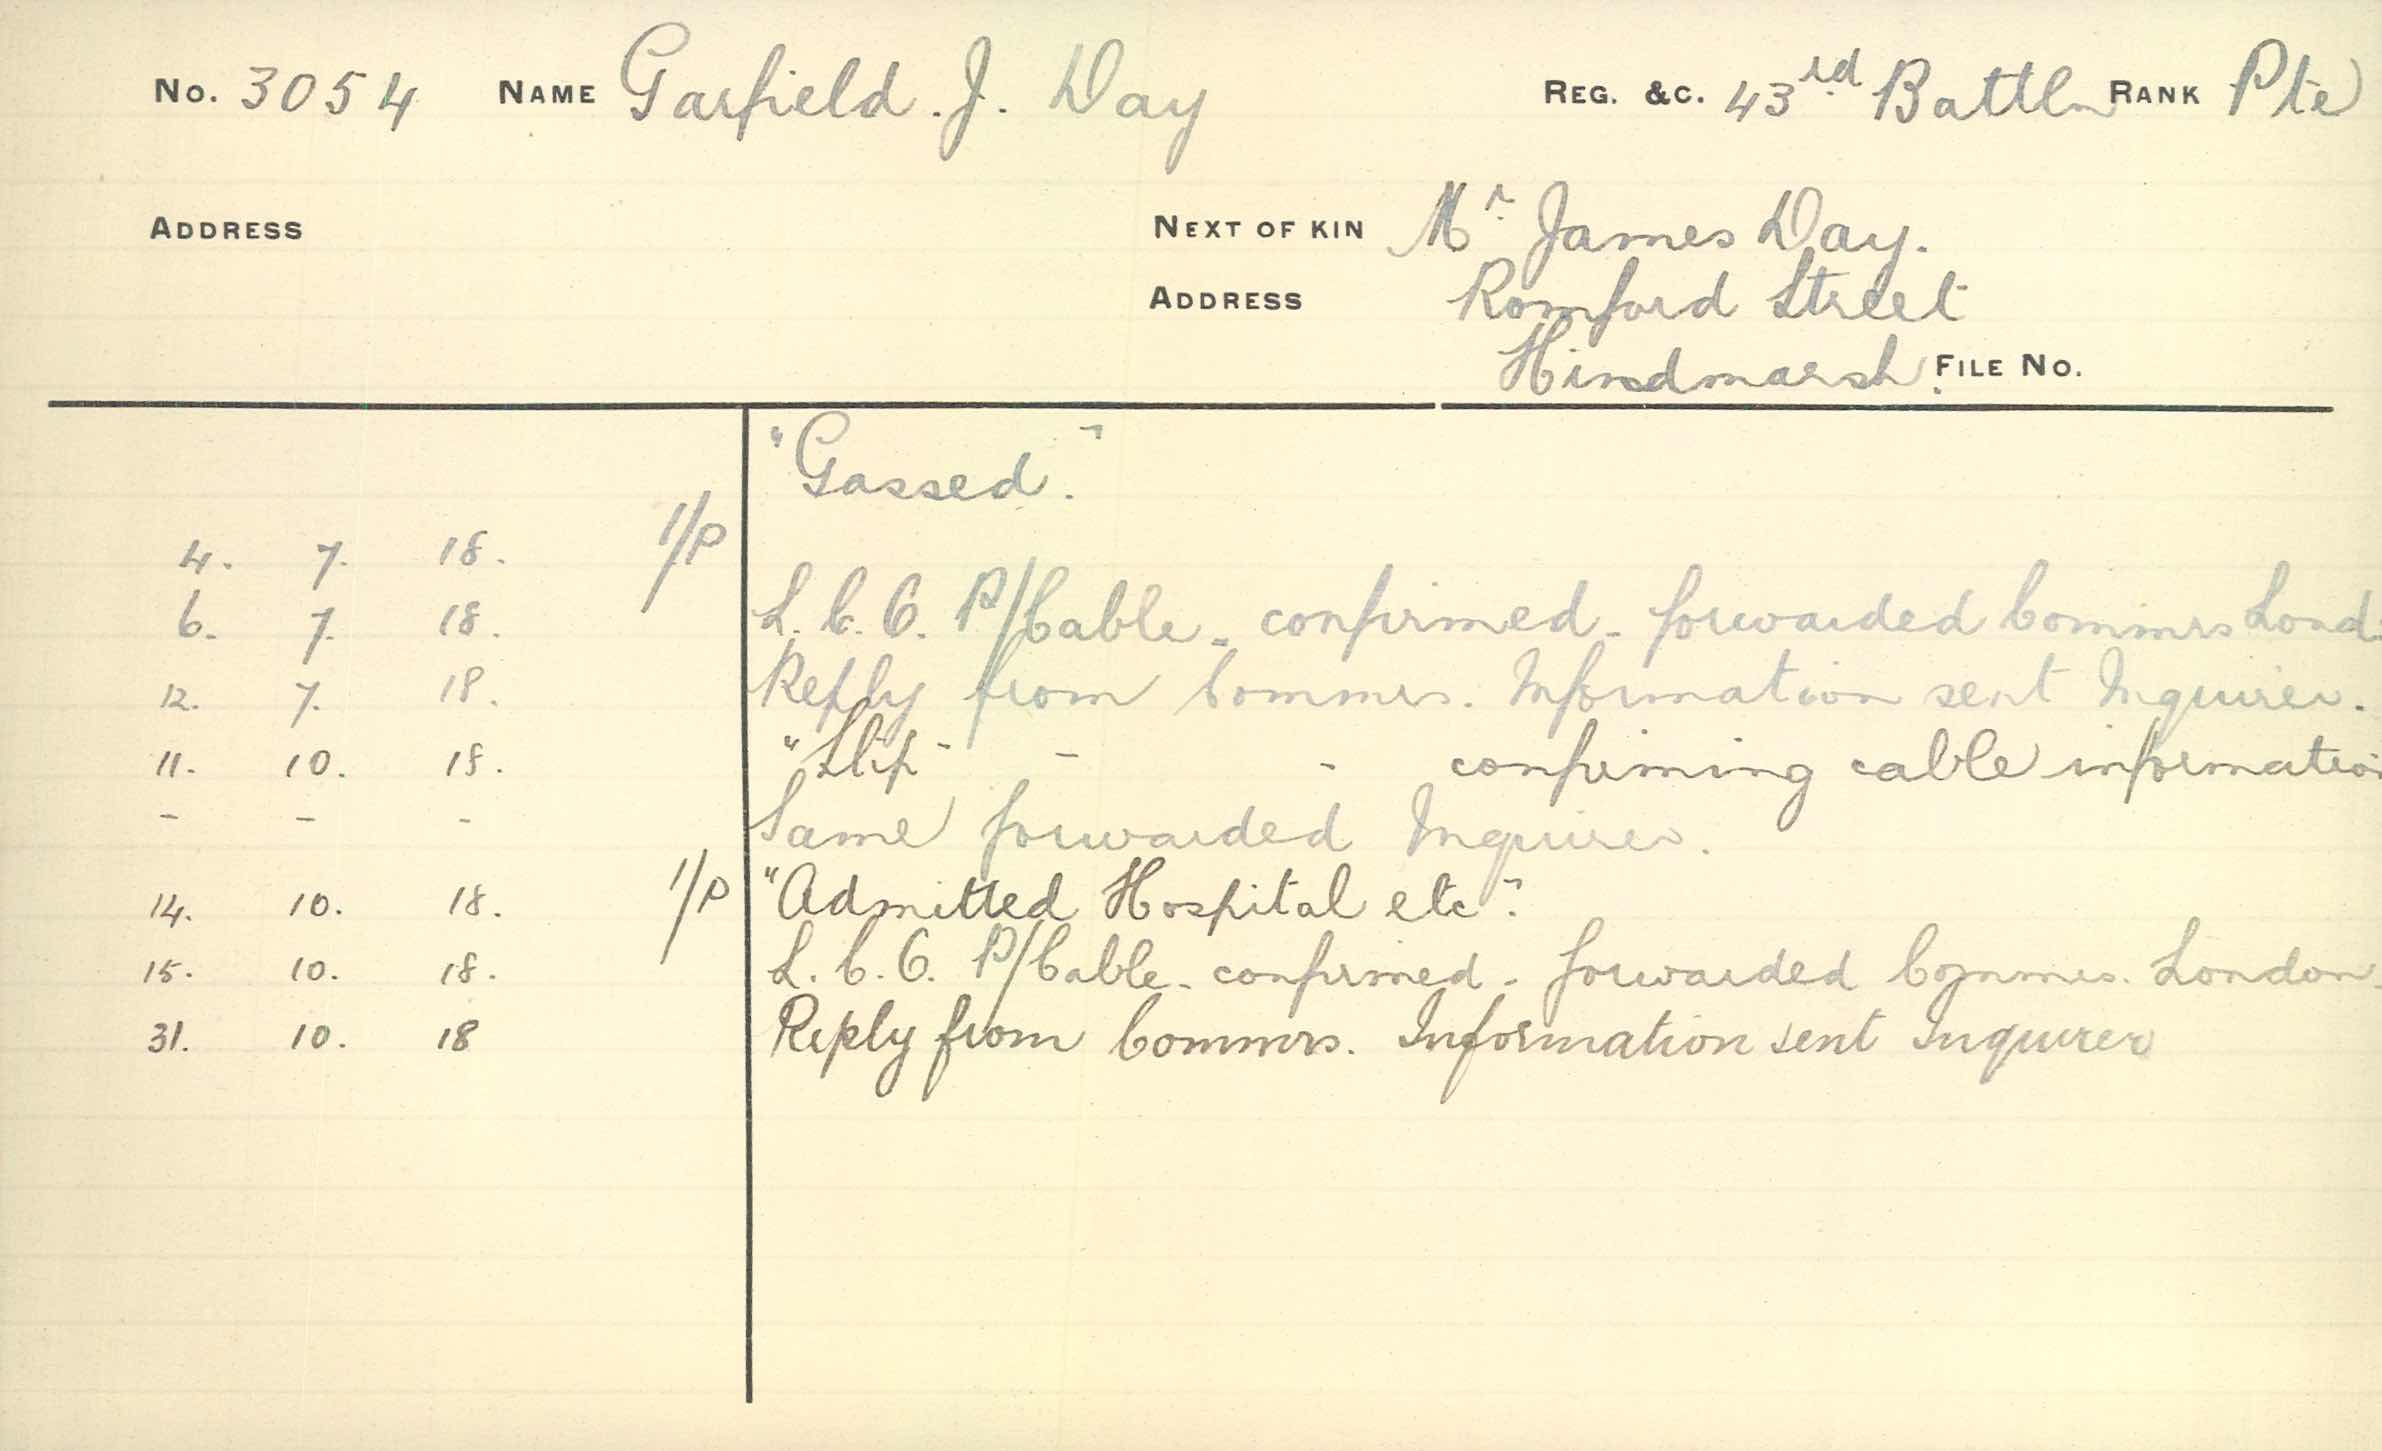 No. 3054 NAME Garfield. J. Day REG. &C. 43rd Battln RANK Pte
ADDRESS NEXT OF KIN Mr. James Day.
ADDRESS Romford Street
Hindmarsh. FILE No.
"Gassed."
4. 7. 18. 1/P
6. 7. 18. L.C.C. P/Cable - confirmed - forwarded Commrs Lond
12. 7. 18. Reply from Commrs. Information sent Inquirer.
11. 10. 18. "Slip" - - confirming cable informatio
- - - Same forwarded Inquirer.
14. 10. 18. 1/P "Admitted Hospital etc".
15. 10. 18. L.C.C. P/Cable - confirmed - forwarded Commrs. London.
31. 10. 18 Reply from Commrs. Information sent Inquirer